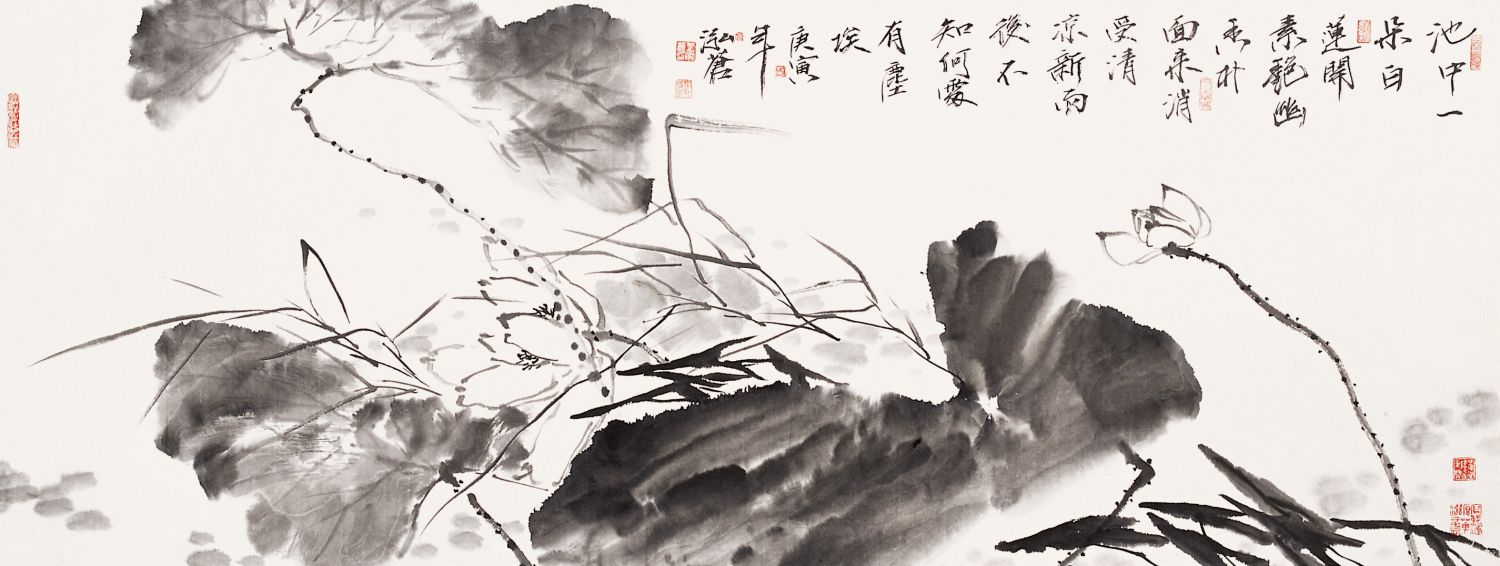 池中一
朵白
蓮開
素艷幽
香扑
面来消
受清
凉新雨
後不
知何處
有塵
埃
庚寅
年
泓蒼